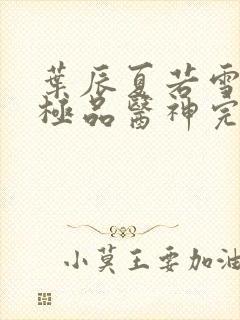 葉辰夏若雪
極品醫神完
小莫王要加油